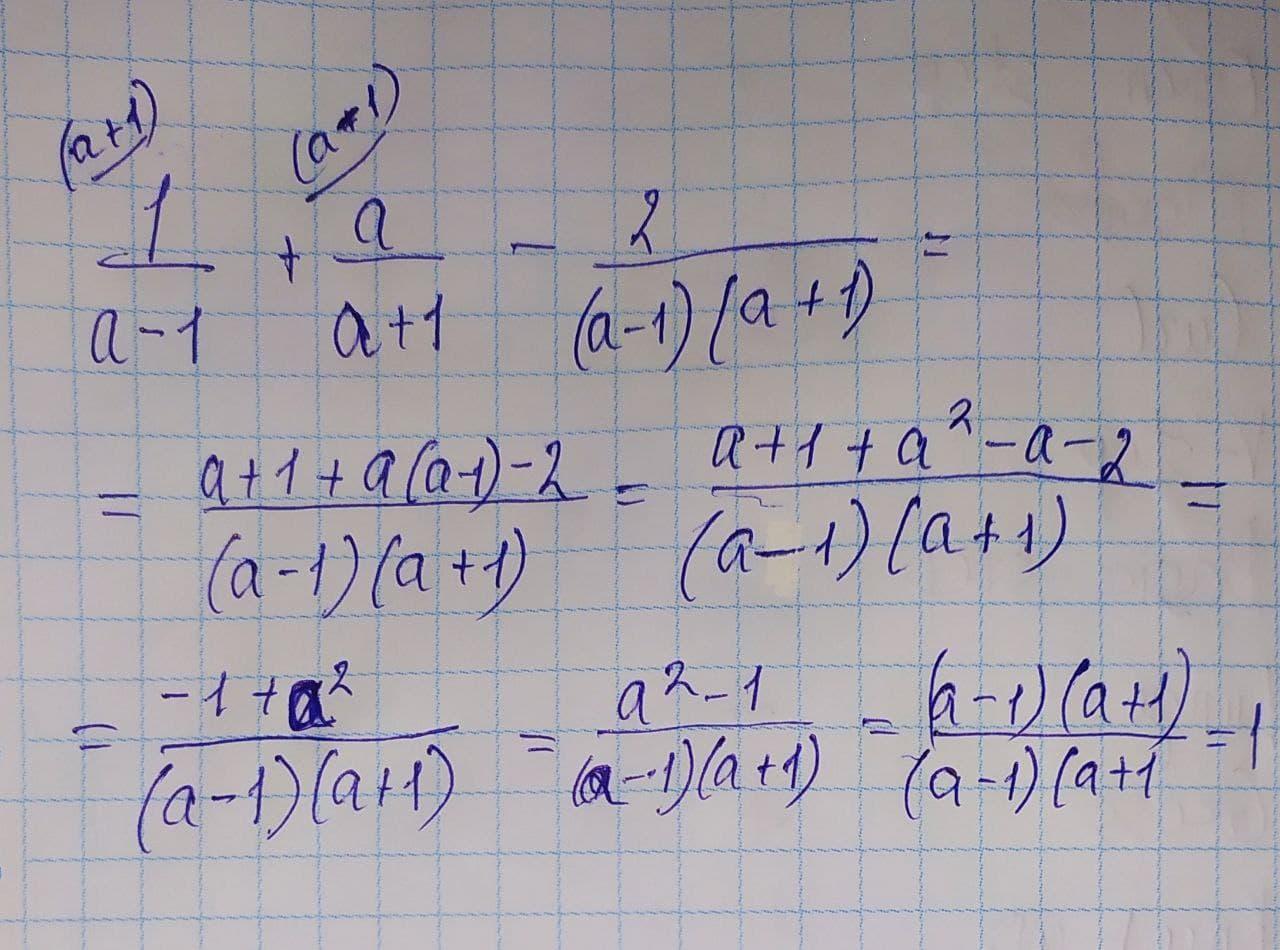 (a+1) (a-1)
1/(a-1) + a/(a+1) - 2/((a-1)(a+1)) =
= (a+1+a(a-1)-2)/((a-1)(a+1)) = (a+1+a²-a-2)/((a-1)(a+1)) =
= (-1+a²)/((a-1)(a+1)) = (a²-1)/((a-1)(a+1)) = ((a-1)(a+1))/((a-1)(a+1) = 1